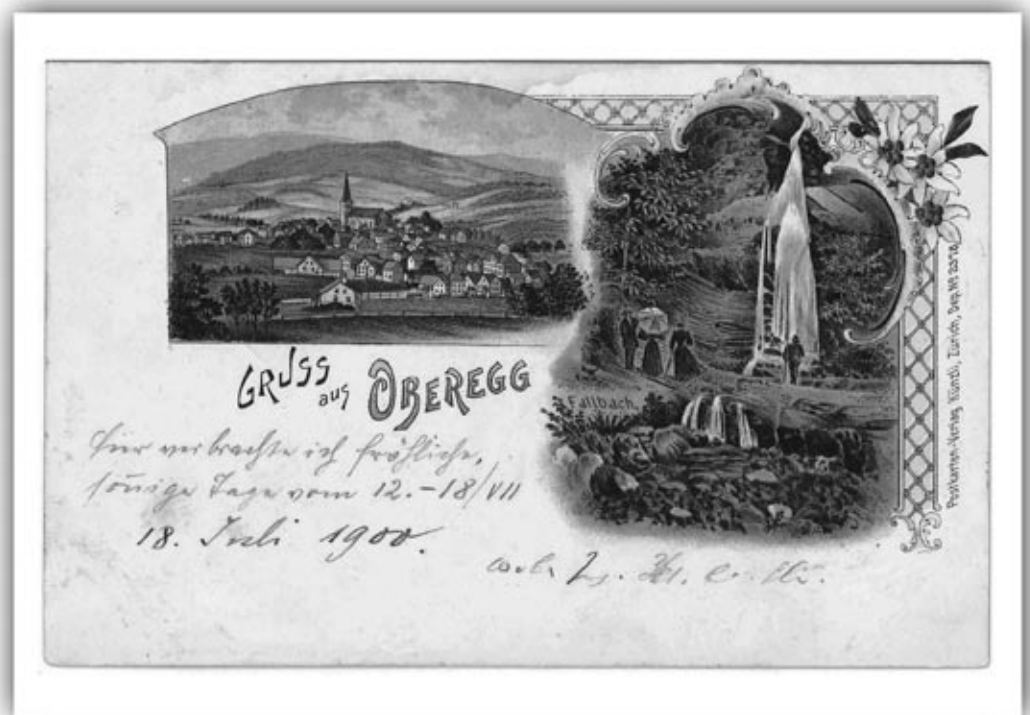 GRUSS
aus OBEREGG
Fallbach.
Postkarten-Verlag Künzli, Zürich, Dep. No 2376
Hier verbrachte ich fröhliche,
sonige Tage vom 12.-18/VII
18. Juli 1900.